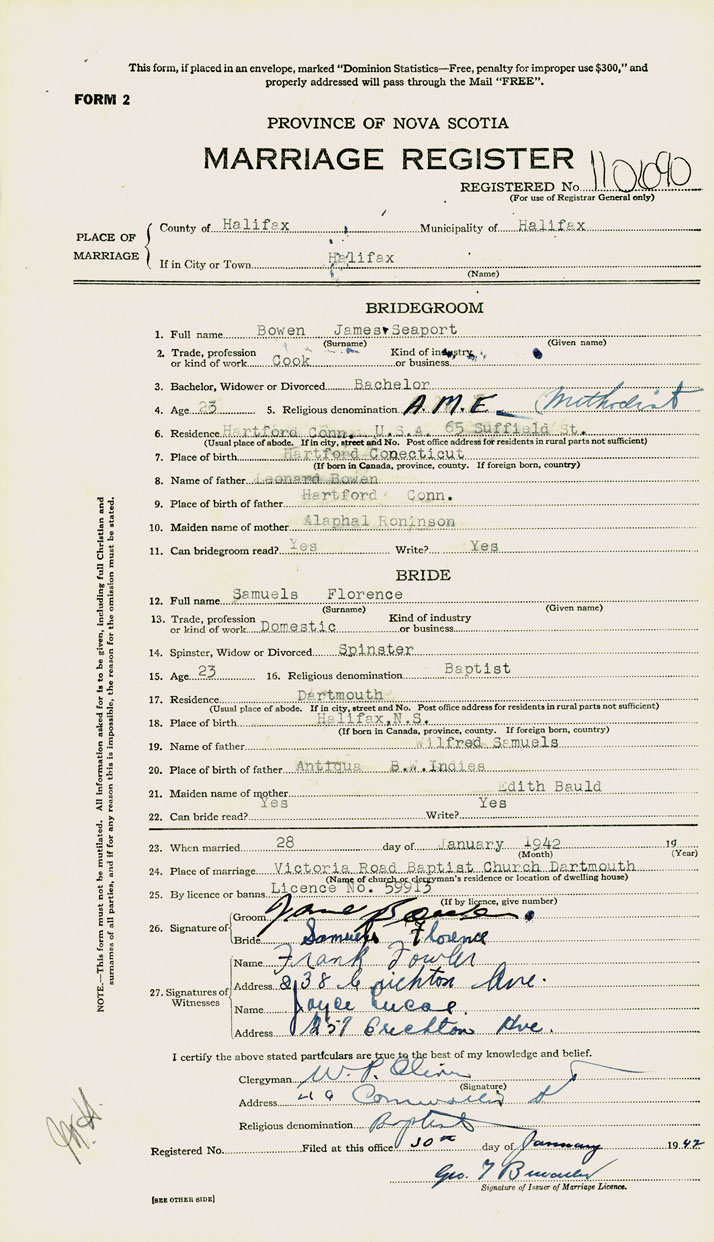 This form, if placed in an envelope, marked "Dominion Statistics—Free, penalty for improper use $300," and
properly addressed will pass through the Mail "FREE".
FORM 2
PROVINCE OF NOVA SCOTIA
MARRIAGE REGISTER
REGISTERED No.
(For use of Registrar General only)
PLACE OF MARRIAGE
County of Halifax Municipality of Halifax
If in City or Town Halifax
(Name)
BRIDEGROOM
1. Full name Bowen James Seaport
(Surname) (Given name)
2. Trade, profession or kind of work Cook Kind of industry or business
3. Bachelor, Widower or Divorced Bachelor
4. Age 23 5. Religious denomination A.M.E. Methodist
6. Residence Hartford Conn. U.S.A. 65 Suffield St.
(Usual place of abode. If in city, street and No. Post office address for residents in rural parts not sufficient)
7. Place of birth Hartford Conecticut
(If born in Canada, province, county. If foreign born, country)
8. Name of father Leonard Bowen
9. Place of birth of father Hartford Conn.
10. Maiden name of mother Alaphal Roninson
11. Can bridegroom read? Yes Write? Yes
BRIDE
12. Full name Samuels Florence
(Surname) (Given name)
13. Trade, profession or kind of work Domestic Kind of industry or business
14. Spinster, Widow or Divorced Spinster
15. Age 23 16. Religious denomination Baptist
17. Residence Dartmouth
(Usual place of abode. If in city, street and No. Post office address for residents in rural parts not sufficient)
18. Place of birth Halifax, N.S.
(If born in Canada, province, county. If foreign born, country)
19. Name of father Wilfred Samuels
20. Place of birth of father Antiqua B.W. Indies
21. Maiden name of mother Edith Bauld
22. Can bride read? Yes Write? Yes
23. When married 28 day of January 1942 19
(Month) (Year)
24. Place of marriage Victoria Road Baptist Church Dartmouth
(Name of church or clergyman's residence or location of dwelling house)
25. By licence or banns Licence No. 59913
(If by licence, give number)
26. Signature of
Groom James Bowen
Bride Samuels Florence
27. Signatures of Witnesses
Name Frank Fowler
Address 238 Crichton Ave.
Name Joyce Lucas
Address 257 Crichton Ave.
I certify the above stated particulars are true to the best of my knowledge and belief.
Clergyman W. P. Oliver
(Signature)
Address Cornwallis St
Religious denomination Baptist
Registered No. Filed at this office 30th day of January 1942
Geo. T
Signature of Issuer of Marriage Licence.
[SEE OTHER SIDE]
NOTE.—This form must not be mutilated. All information asked for is to be given, including full Christian and
surnames of all parties, and if for any reason this is impossible, the reason for the omission must be stated.